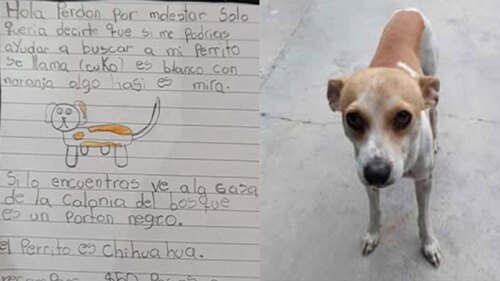 Hola Perdon Por molestar Solo
queria decirte que si me podrias
ayudar a buscar a mi Perrito
se llama (cuko) es blanco con
naranja algo hasi es mira.
Si lo encuentras ve ala Casa
de la Colonia del bosque
es un Porton negro.
el Perrito es Chihuahua.